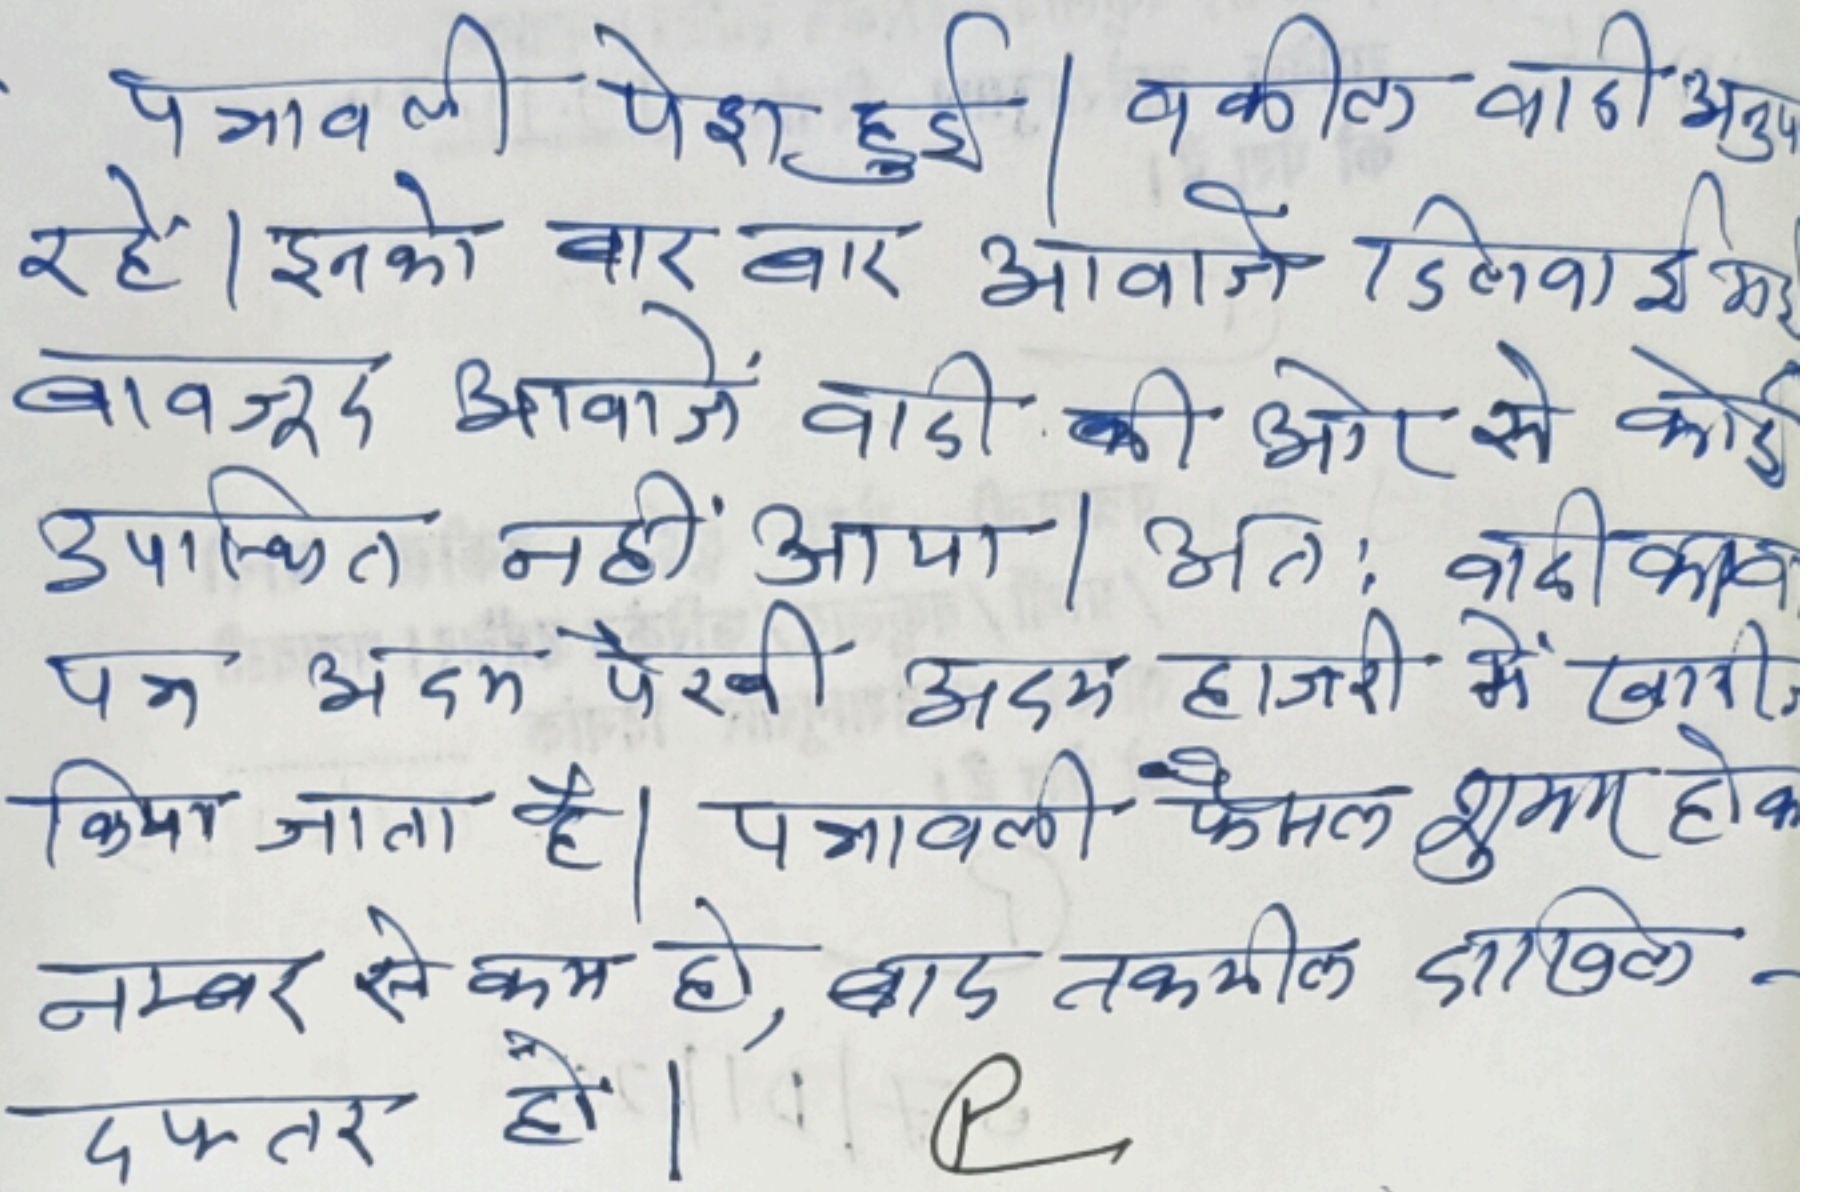 पत्रावली पेश हुई। वकील वादी अनुप
रहें। इनको बार बार आवाजे दिलवाई गई
बावजूद आवाजें वादी की ओर से कोई
उपस्थित नहीं आया। अतः वादी का वा
पत्र अदम पैरवी अदम हाजरी में खारीज
किया जाता है। पत्रावली फैसल शुमार होक
नम्बर से कम हो, बाद तकमील दाखिल -
दफतर हो।